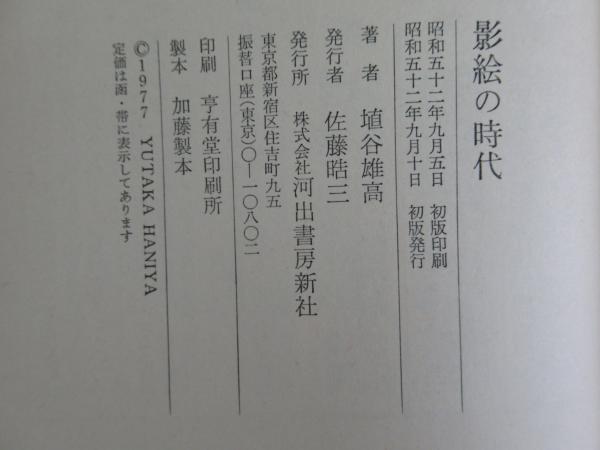 影絵の時代
昭和五十二年九月五日 初版印刷
昭和五十二年九月十日 初版発行
著者 埴谷雄高
発行者 佐藤晧三
発行所 株式会社河出書房新社
東京都新宿区住吉町九五
振替口座(東京)〇―一〇八〇二
印刷 亨有堂印刷所
製本 加藤製本
©1977 YUTAKA HANIYA
定価は函・帯に表示してあります